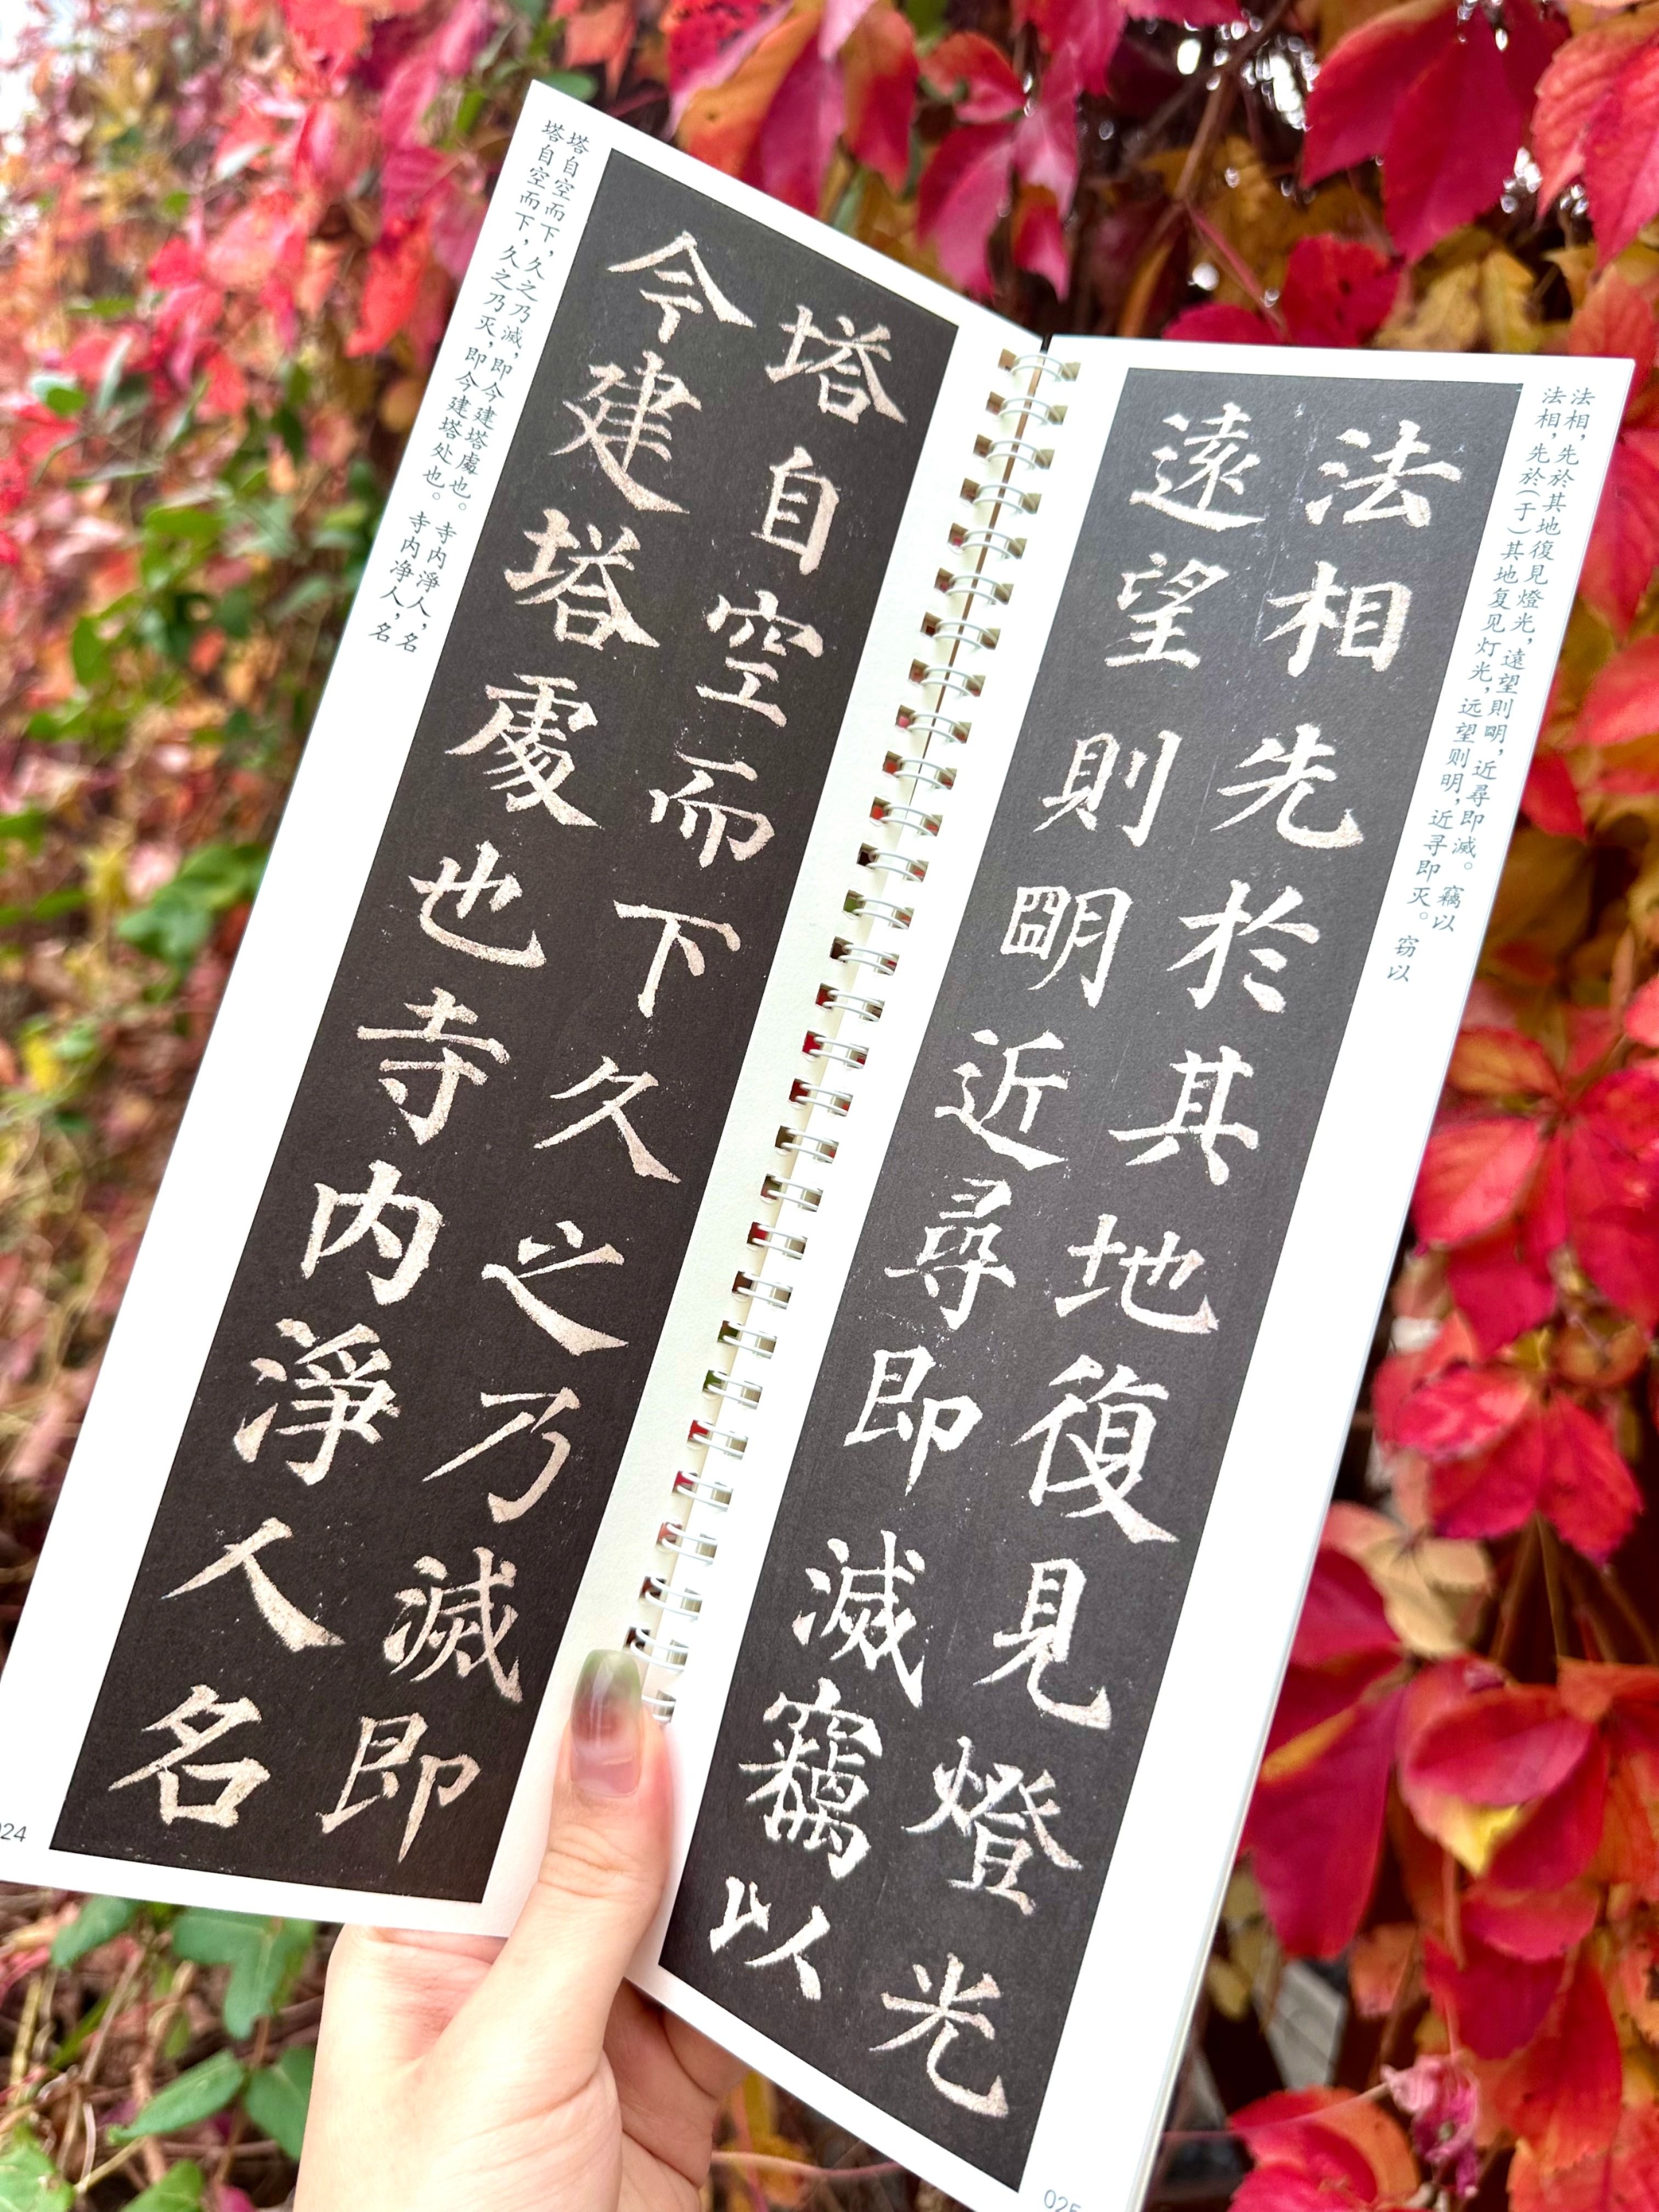 塔自空而下久之乃滅即
今建塔處也寺内淨人名
塔自空而下，久之乃滅，即今建塔處也。寺内淨人，名
塔自空而下，久之乃灭，即今建塔处也。寺内净人，名
024
法相，先於其地復見燈光，遠望則朙，近尋即滅。竊以
法相，先於（于）其地复见灯光，远望则明，近寻即灭。窃以
法相先於其地復見燈光
遠望則朙近尋即滅竊以
025